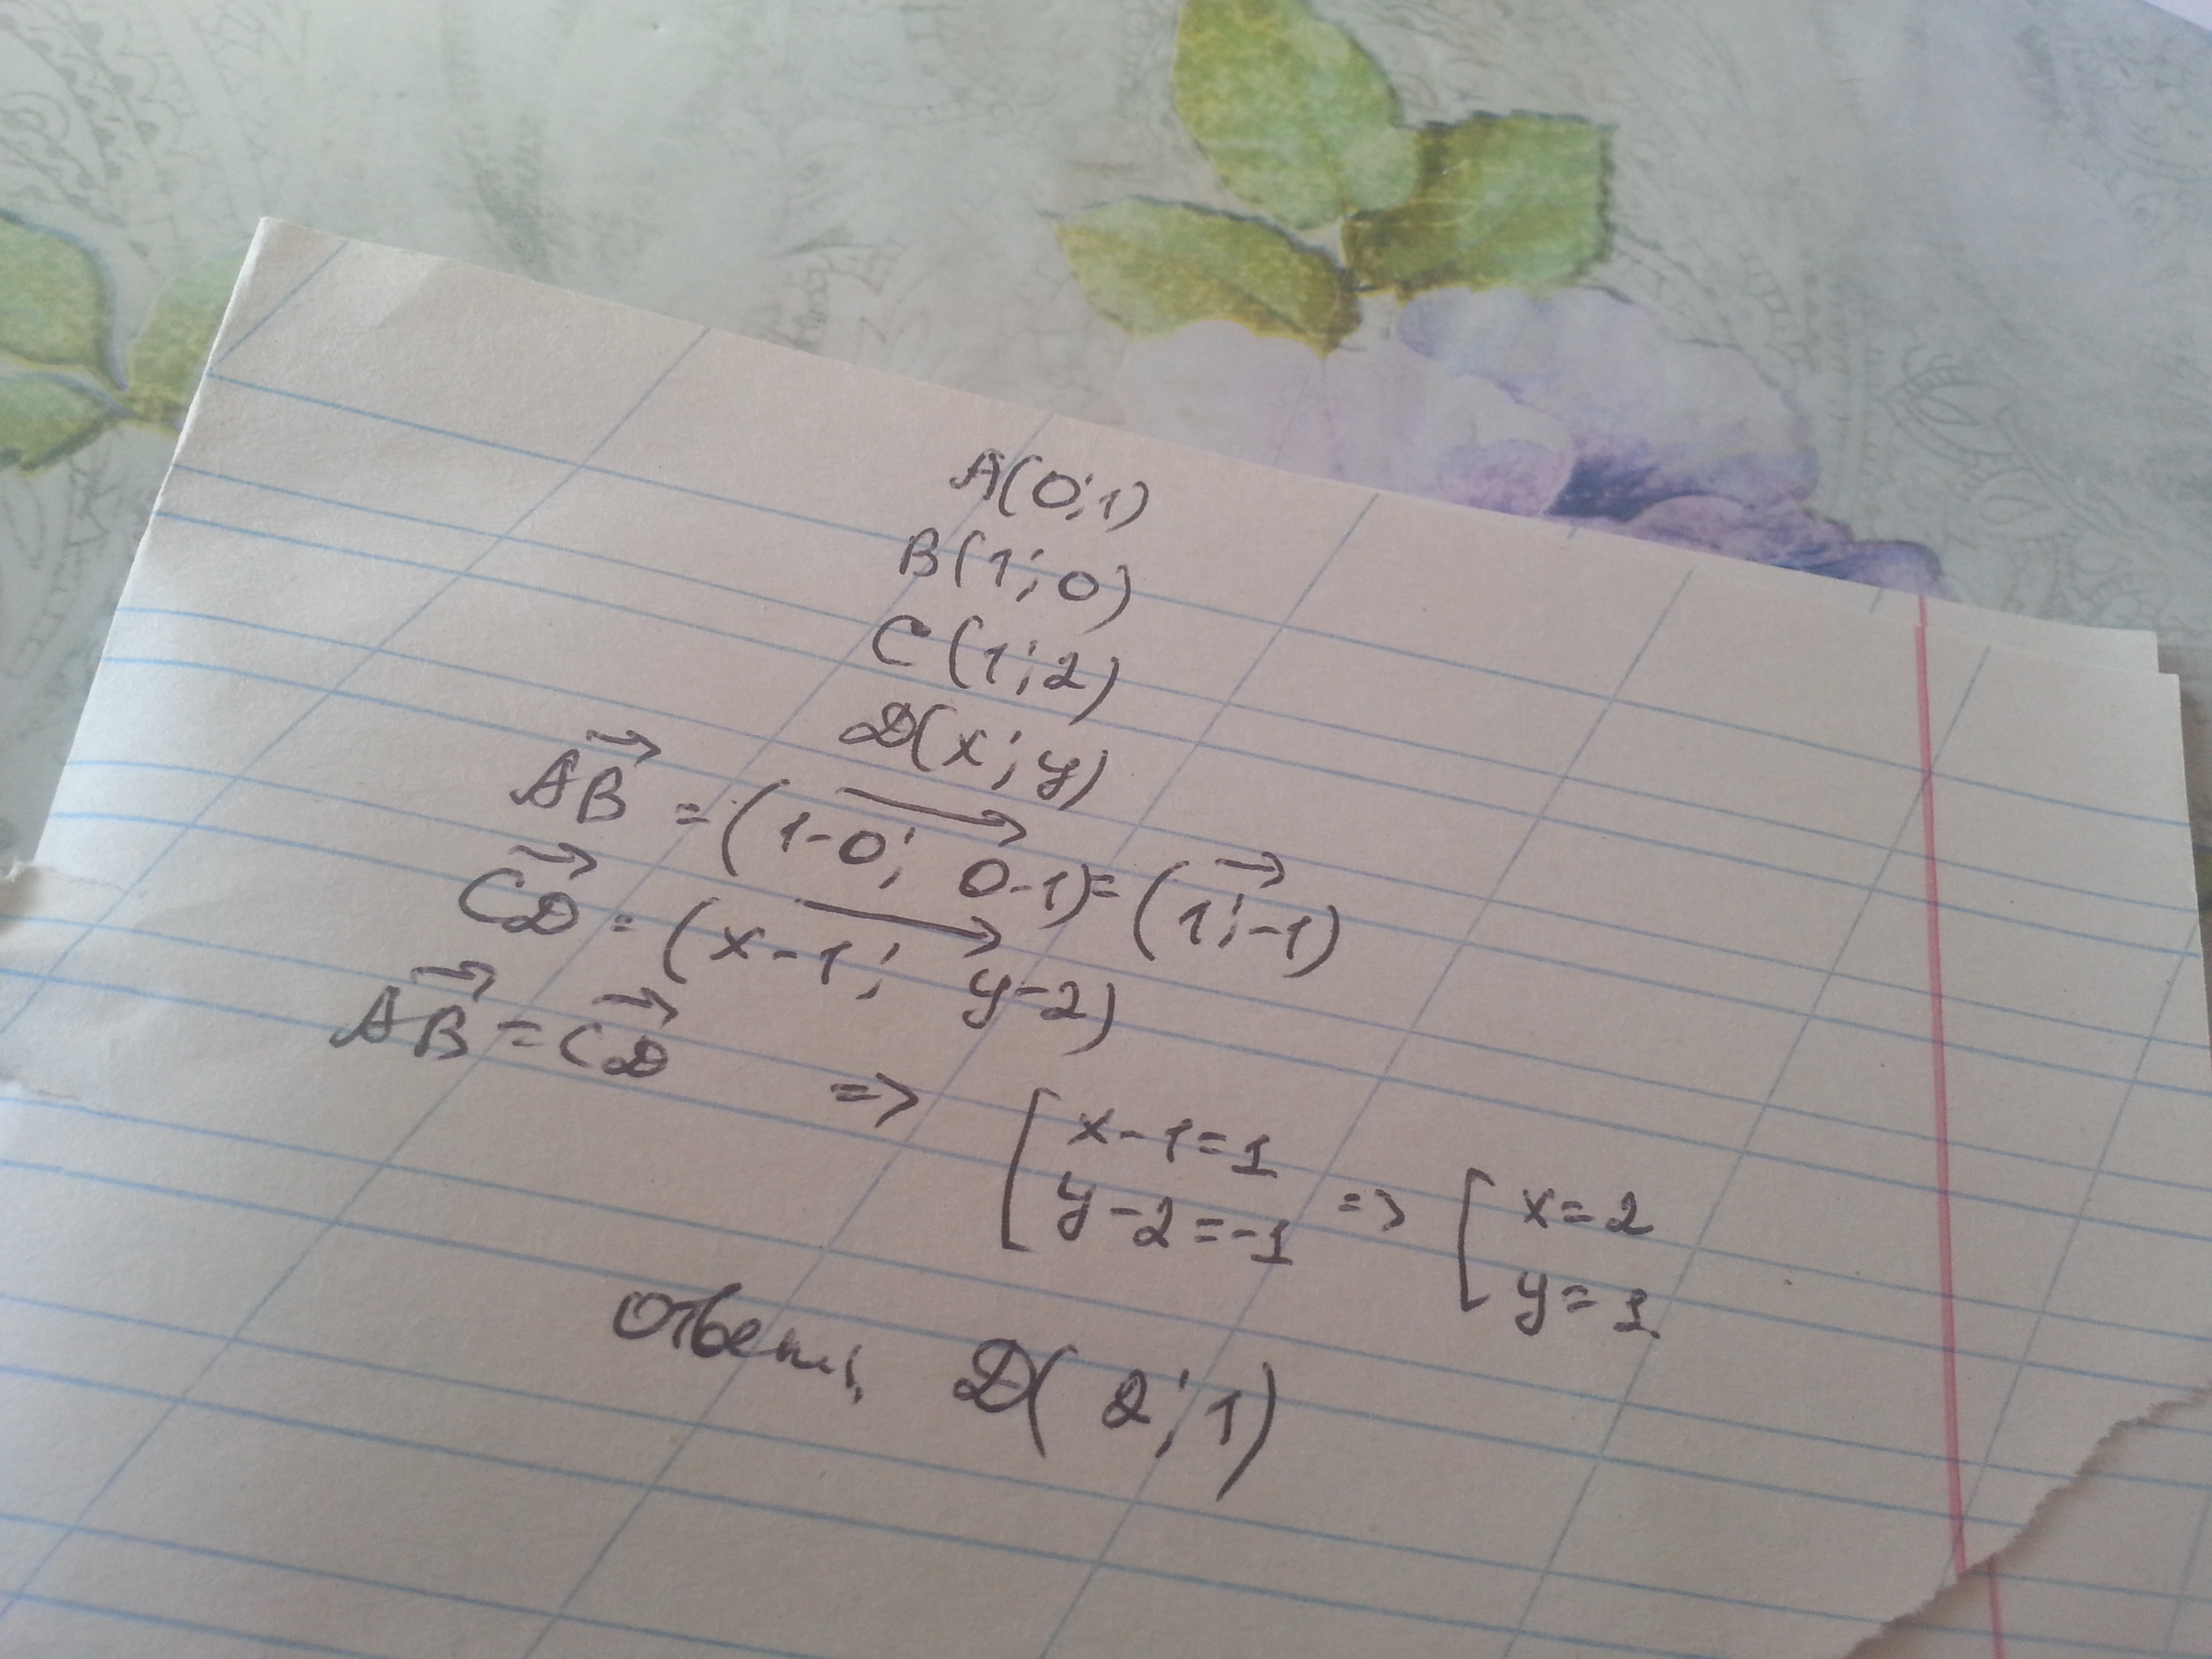 A(0;1)
B(1;0)
C(1;2)
D(x;y)
AB = (1-0; 0-1) = (1;-1)
CD = (x-1; y-2)
AB = CD => [ x-1=1 => [ x=2
y-2=-1 y=1
Ответ: D(2;1)